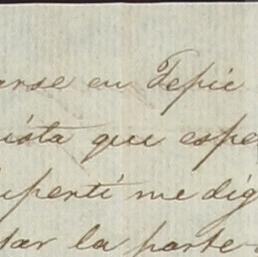 arse en Tepic
ista que espe
uperti me dig
tar la parte